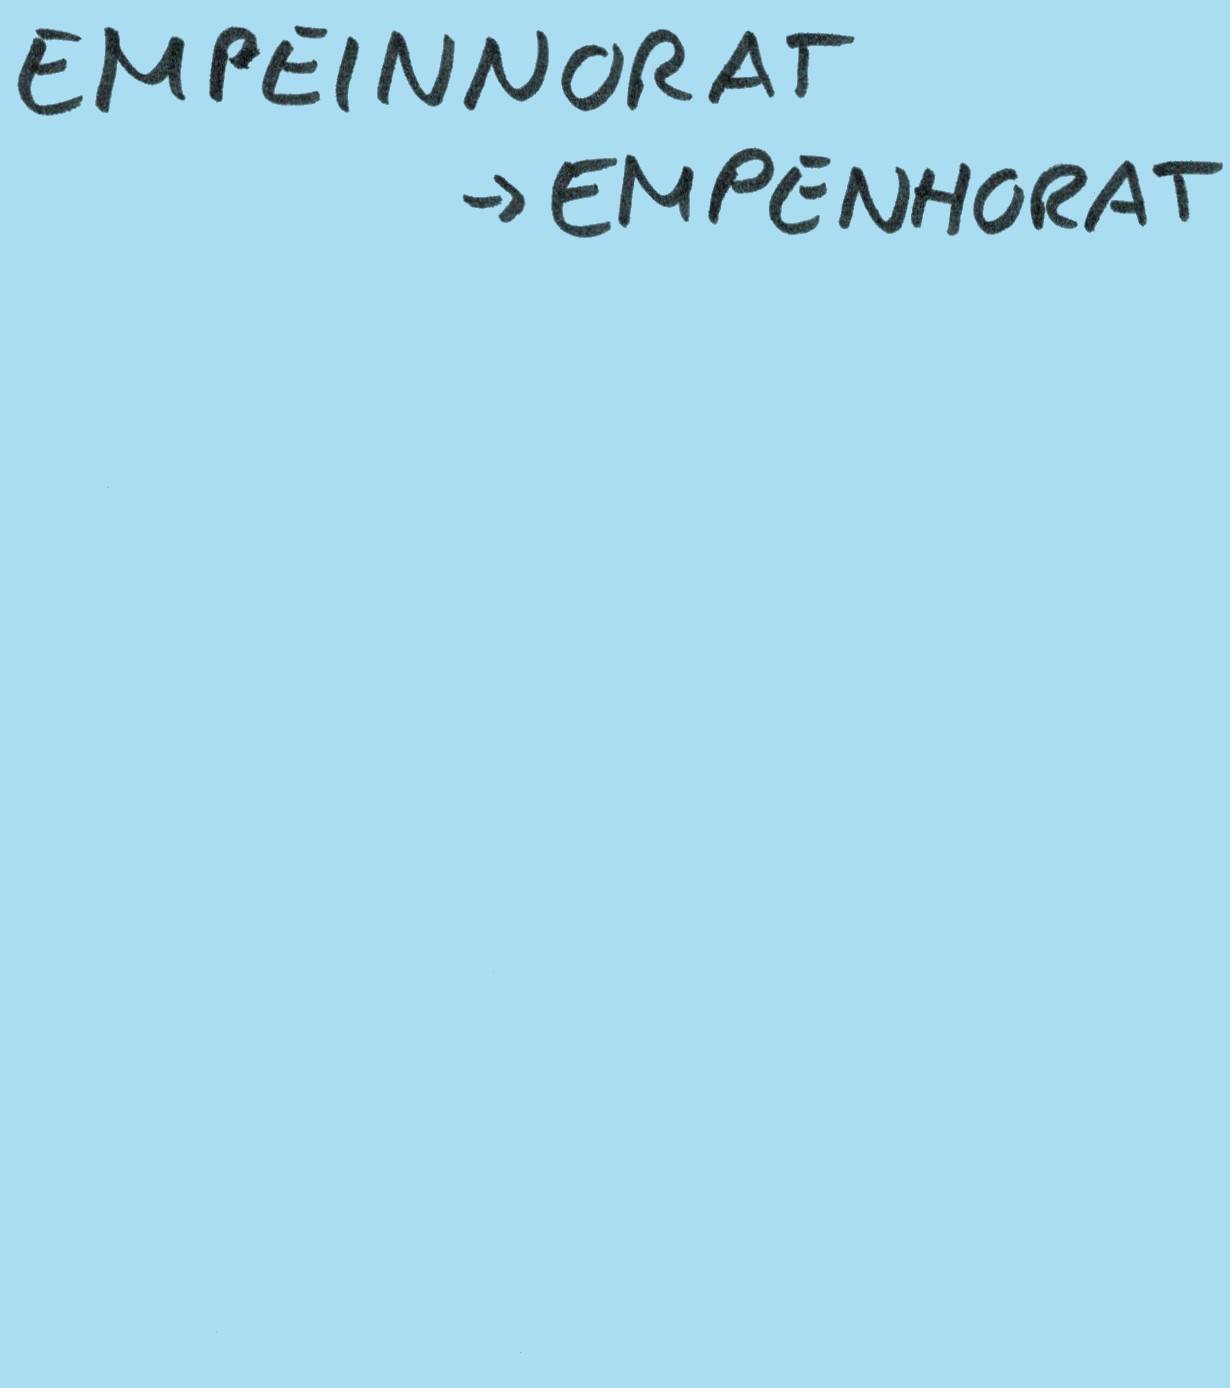 EMPEINNORAT
→ EMPENHORAT